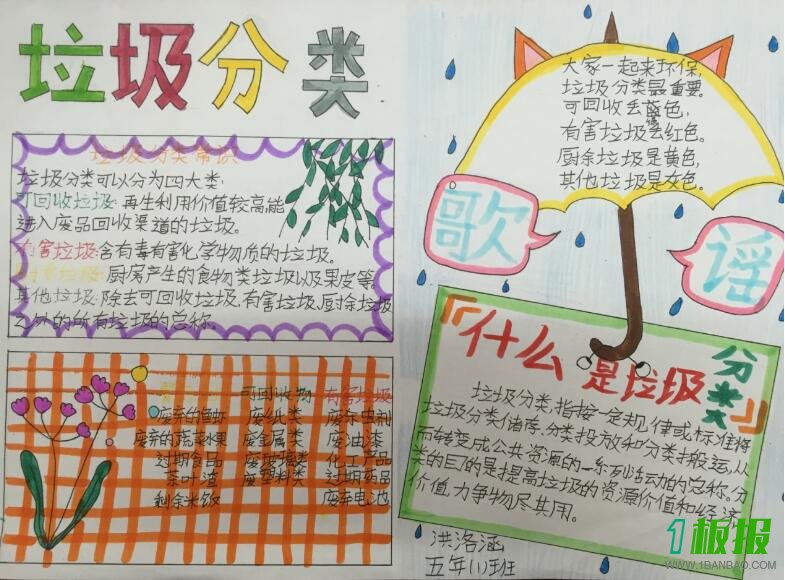 垃圾分类
垃圾分类常识
垃圾分类可以分为四大类:
可回收垃圾:再生利用价值较高,能
进入废品回收渠道的垃圾。
有害垃圾:含有毒有害化学物质的垃圾。
厨余垃圾:厨房产生的食物类垃圾以及果皮等。
其他垃圾:除去可回收垃圾,有害垃圾,厨余垃圾
之外的所有垃圾的总称。
可回收物 有害垃圾
废弃的鱼虾 废纸类 废杀虫剂
废弃的蔬菜水果 废金属类 废油漆
过期食品 废玻璃类 化工产品
茶叶渣 废塑料类 过期药品
剩余米饭 废弃电池
大家一起来环保,
垃圾分类最重要。
可回收丢蓝色,
有害垃圾丢红色。
厨余垃圾是黄色,
其他垃圾是灰色。
歌谣
『什么是垃圾分类』
垃圾分类,指按一定规律或标准将
垃圾分类储存、分类投放和分类搬运,从
而转变成公共资源的一系列活动的总称。分
类的目的是提高垃圾的资源价值和经济
价值,力争物尽其用。
洪洛涵
五年(1)班
1板报
WWW.1BANBAO.COM